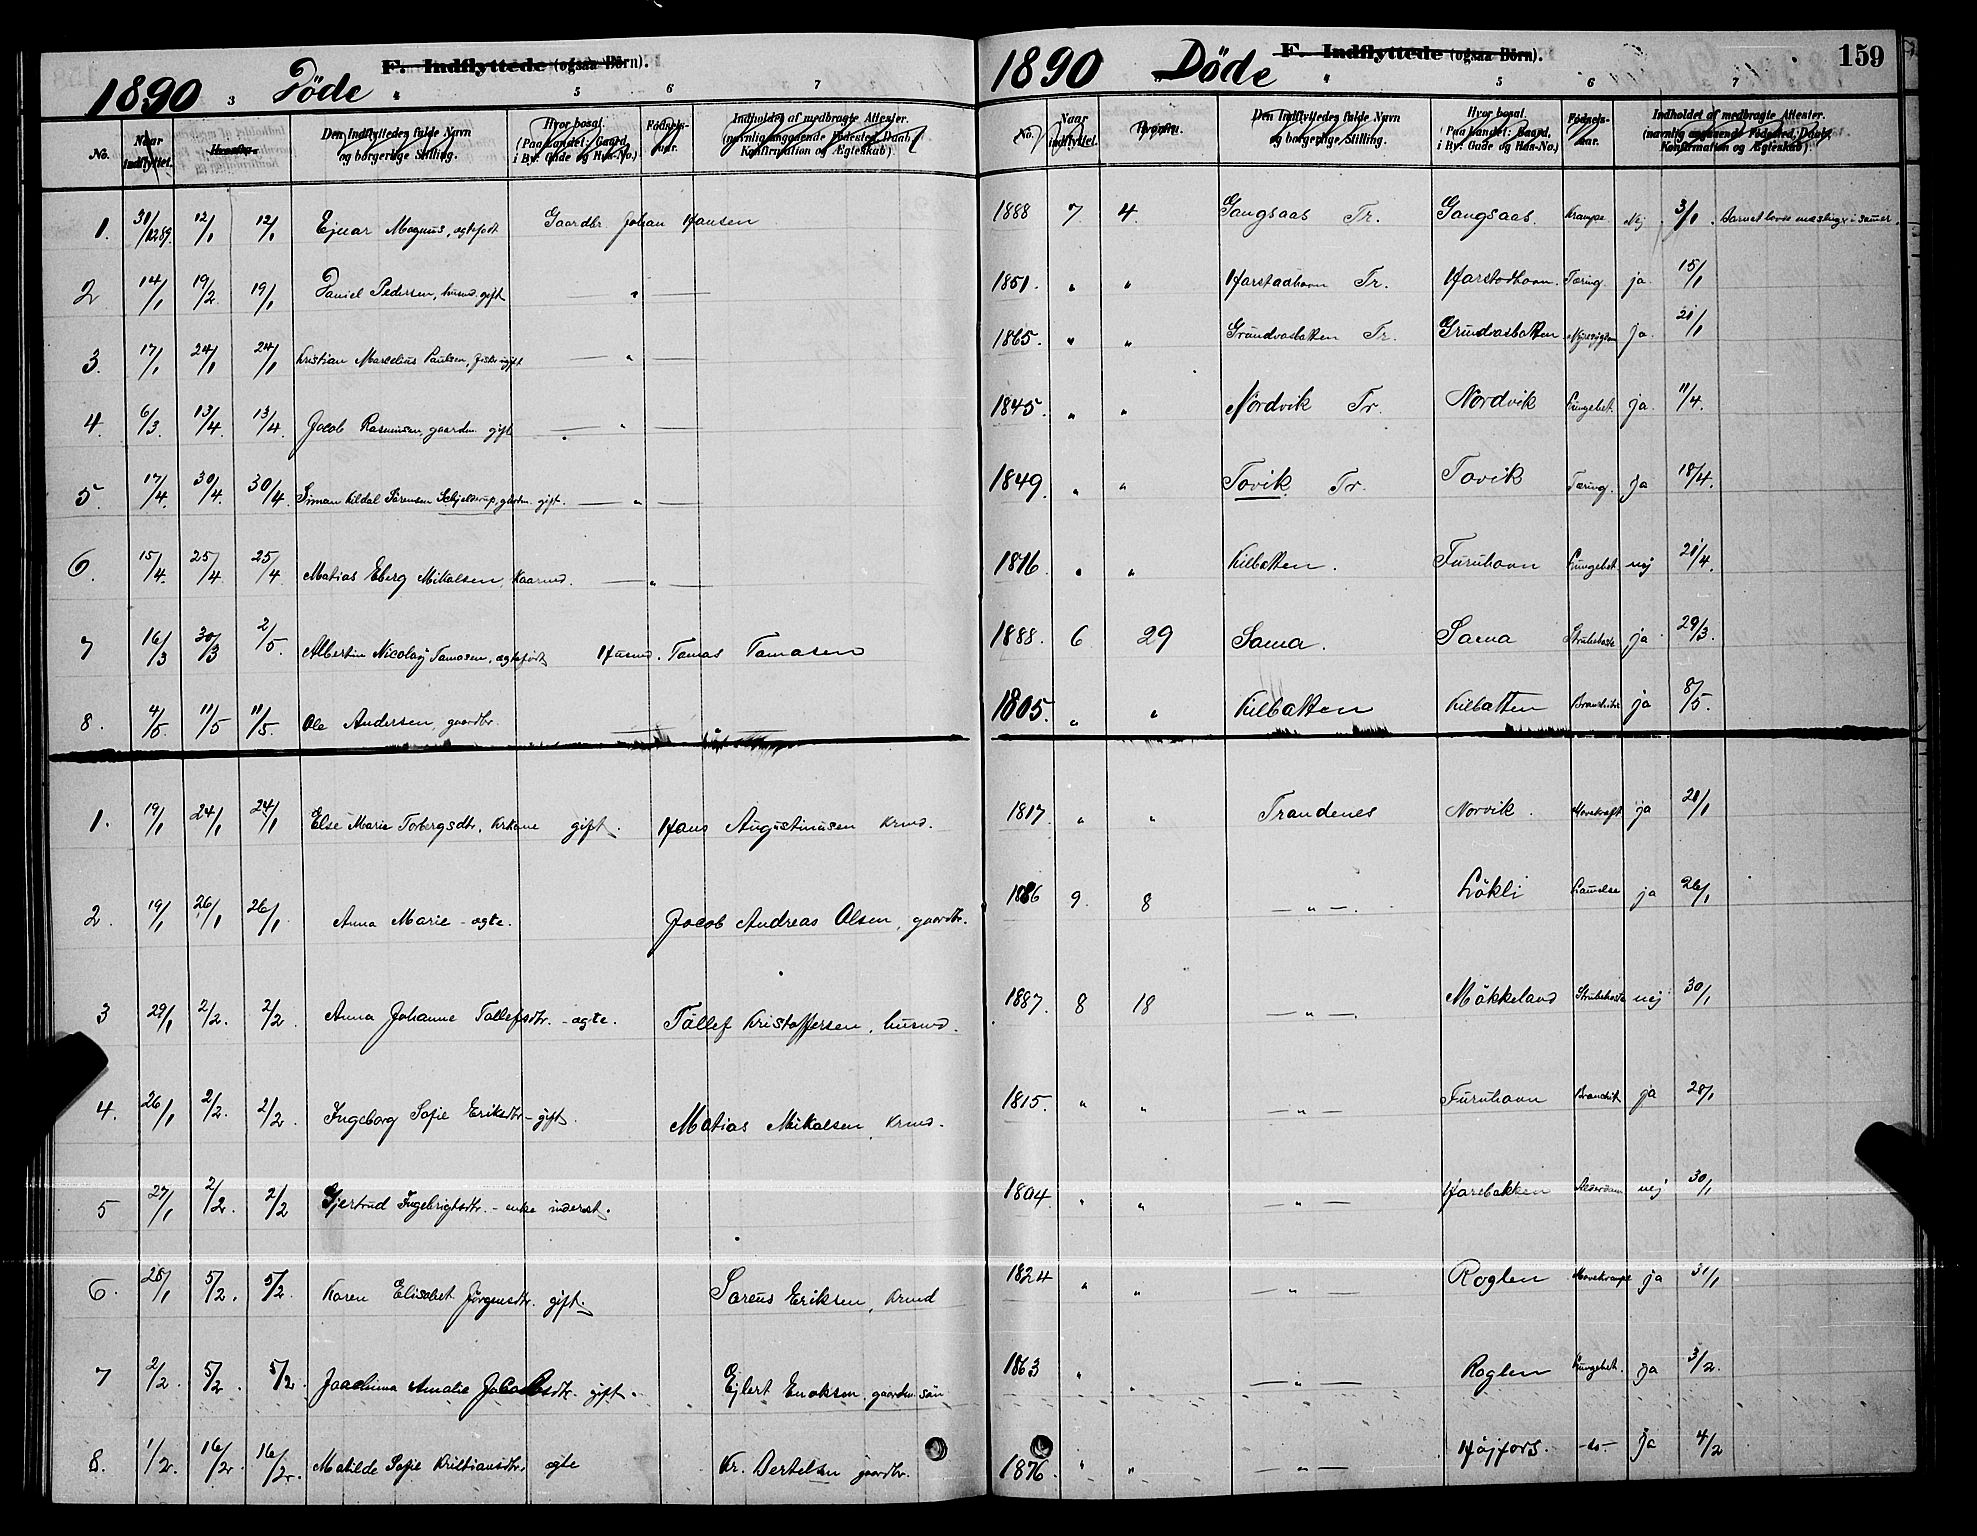 F. Indflyttede (ogsaa Börn).
1890 Döde
3 4 5 6 7
No.
Naar indflyttet.
Hvorfra.
Den Indflyttedes fulde Navn og borgerlige Stilling.
Hvor bosat. (Paa Landet: Gaard, i By: Gade og Hus-No.)
Födsels-aar.
Indholdet af medbragte Attester. (navnlig angaaende Födested, Daab, Konfirmation og Ægteskab)
1. 31/12 89. 12/1 12/1 Ejnar Magnus, ægtefödt Gaardbr Johan Hansen
2 14/1 19/2 19/1 Daniel Pedersen, husmd. gift — " —
3. 17/1 24/1 24/1 Kristian Marselius Paulsen, — " —
4. 6/3. 13/4. 13/4. Jocob Rasmusen, gaardm. gift — " —
5. 17/4. 30/4. 30/4. Simon Kildal Sörensen Schjelderup, gift. — " —
6. 15/4. 25/4. 25/4. Matias Eberg Mikalsen, Kaarmd. — " —
7 16/3 30/3 2/5. Albertin Nicolaj Tomasen, ægtefödt Husmd. Tomas Tomasen
8. 4/5. 11/5 11/5. Ole Andersen, gaardbr. — " —
1. 19/1 24/1 24/1 Else Marie Torbergsdtr, Krkone gift. Hans Augustinusen Krmd.
2. 19/1 26/1 26/1. Anna Marie - ægte. Jacob Andreas Olsen, gaardbr.
3 29/1 2/2. 2/2. Anna Johanne Tollefsdtr. - ægte. Tollef Kristoffersen, husmd.
4. 26/1 2/2. 2/2. Ingeborg Sofie Eriksdtr - gift. Matias Mikalsen, Krmd.
5 27/1 2/2. 2/2 Gjertrud Ingebrigtsdtr. - enke inderst.
6. 28/1 5/2. 5/2. Karen Elisabet Jörgensdtr. gift. Soreus Eriksen, Krmd
7 2/2. 5/2. 5/2. Joachima Amalie Jacobsdtr. gift. Ejlert Enoksen, gaardm. sön
8. 1/2. 16/2. 16/2. Matilde Sofie Kristiansdtr, ægte Kr. Bertelsen gaardbr.
F. Indflyttede (ogsaa Börn).
159
1890 Döde
5 6 7
No.
Naar indflyttet.
Hvorfra.
Den Indflyttedes fulde Navn og borgerlige Stilling.
Hvor bosat. (Paa Landet: Gaard, i By: Gade og Hus-No.)
Födsels-aar.
Indholdet af medbragte Attester. (navnlig angaaende Födested, Daab, Konfirmation og Ægteskab)
1888 7 4 Gangsaas Tr. Gangsaas. Krampe Nej 3/1
1851. " " Harstadhavn Tr. Harstadhavn. Tæring ja. 15/1
1865. " " Grundvasbotten Tr. Grundvasbotten ja. 21/1
1845. " " Nordvik Tr. Nordvik Lungebet. ja. 11/4.
1849. " " Tovik Tr. Tovik Tæring. Ja 18/4.
1816. " " Kilbotten. Furuhavn Lungebet. nej 21/4.
1888. 6 29 Sama. Sama Strubehoste ja. 29/3.
1805. " " Kilbotten Kilbotten ja 8/5.
1817. " " Trandenes Norvik. Mavekræft ja 21/1
1886 9. 8 — " —. Lökli ja 26/1
1887. 8 18 — " —. Mökkeland Strubehoste nej 30/1
1815. " " — " — Furuhavn ja 28/1
1804. " " — " — Harebakken nej 30/1
1824 " " — " — Roglen Mavekrampe ja 31/1
1863 " " — " — Roglen Lungebet. ja 3/2.
1876. " " — " — Höjfors. -do- Ja 4/2